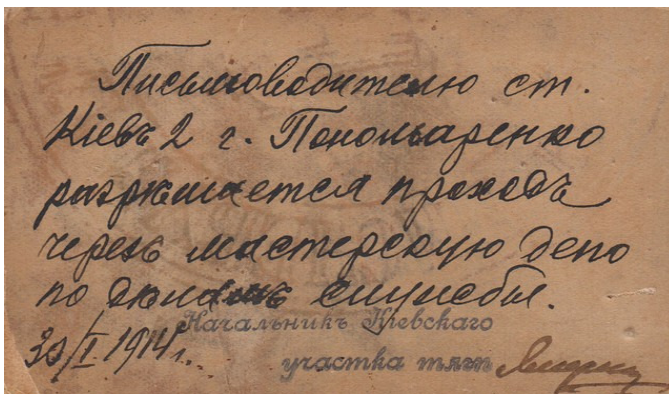 Письмоводителю ст.
Кіевъ 2 г. Пономаренко
разрѣшается проходъ
черезъ мастерскую депо
по дѣламъ службы.
Начальникъ Кіевскаго
30/I 1914 г.
участка тяги